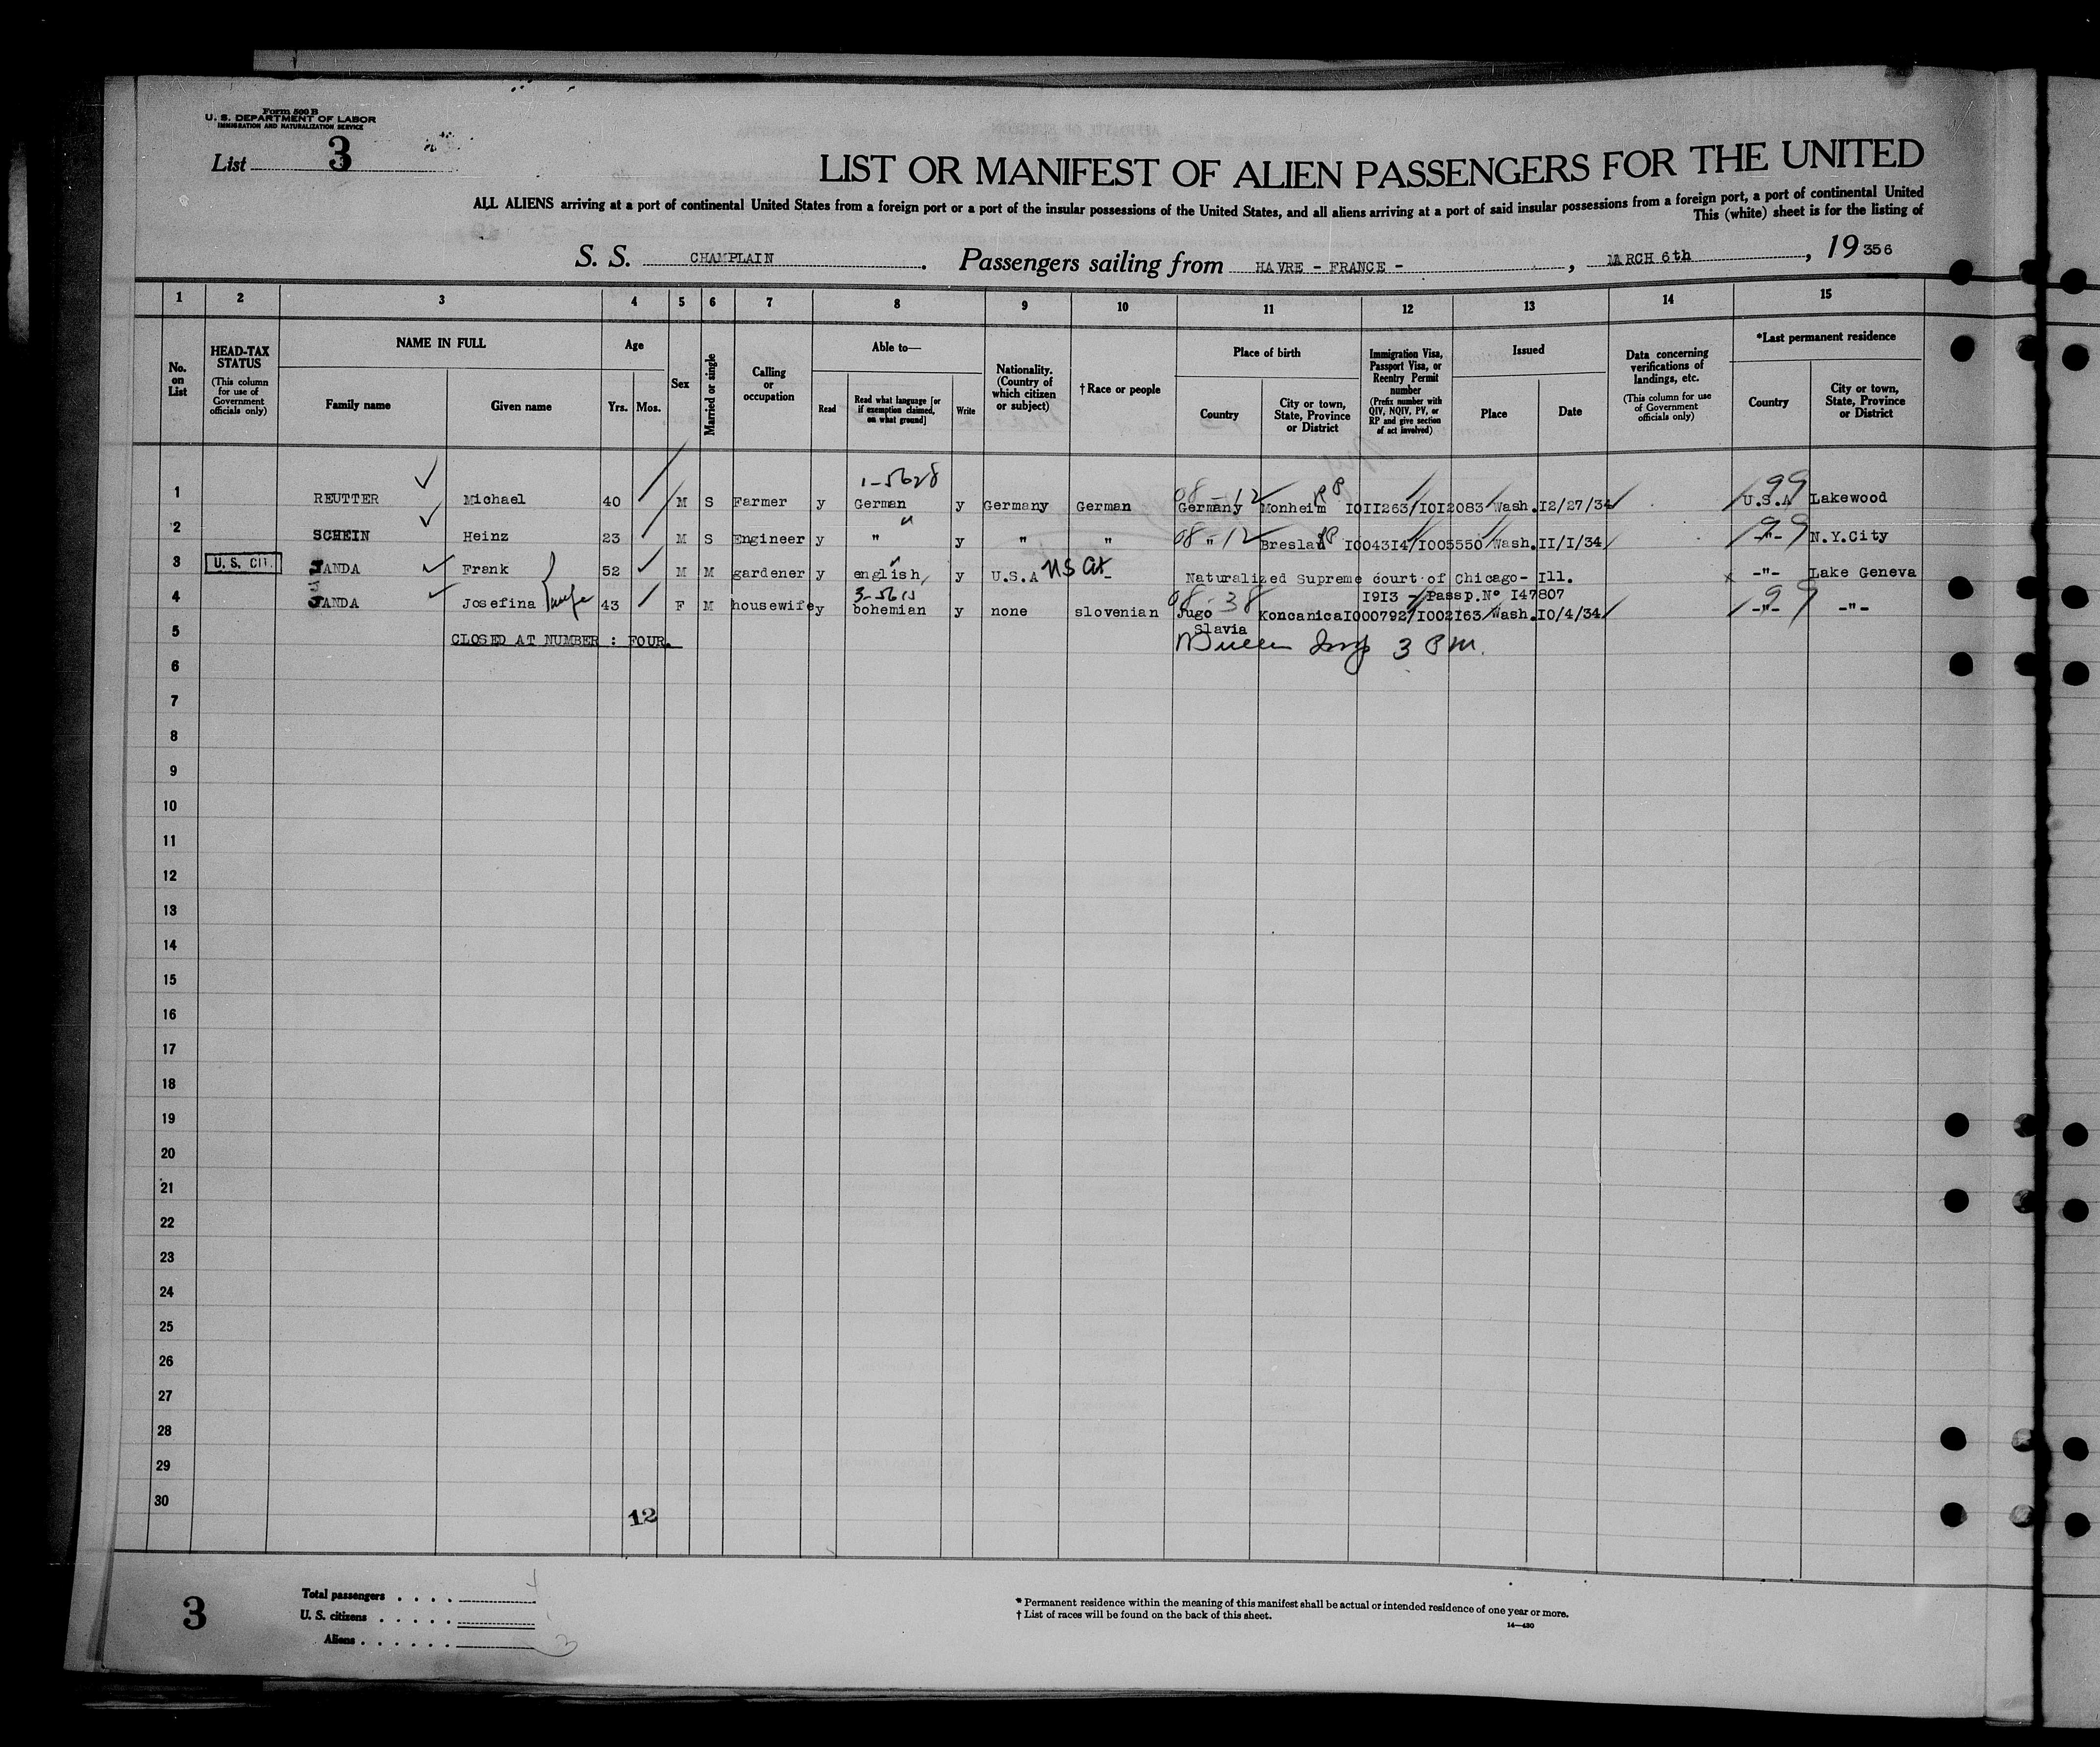 Form 500 B
U. S. DEPARTMENT OF LABOR
IMMIGRATION AND NATURALIZATION SERVICE
List 3
LIST OR MANIFEST OF ALIEN PASSENGERS FOR THE UNITED
ALL ALIENS arriving at a port of continental United States from a foreign port or a port of the insular possessions of the United States, and all aliens arriving at a port of said insular possessions from a foreign port, a port of continental United
This (white) sheet is for the listing of
S. S. CHAMPLAIN . Passengers sailing from HAVRE - FRANCE - , MARCH 6th , 19 356
1 2 3 4 5 6 7 8 9 10 11 12 13 14 15
No. on List
HEAD-TAX STATUS (This column for use of Government officials only)
NAME IN FULL
Family name Given name
Age
Yrs. Mos.
Sex
Married or single
Calling or occupation
Able to—
Read Read what language [or if exemption claimed, on what ground] Write
Nationality. (Country of which citizen or subject)
†Race or people
Place of birth
Country City or town, State, Province or District
Immigration Visa, Passport Visa, or Reentry Permit number (Prefix number with QIV, NQIV, PV, or RP and give section of act involved)
Issued
Place Date
Data concerning verifications of landings, etc. (This column for use of Government officials only)
*Last permanent residence
Country City or town, State, Province or District
1-5628
1 REUTTER Michael 40 M S Farmer y German y Germany German 08-12 Germany Monheim RP IOII263/IOI2083 Wash. I2/27/34 99 U.S.A Lakewood
2 SCHEIN Heinz 23 M S Engineer y " y " " 08-12 " Breslau RP I0043I4/I005550 Wash. II/I/34 99 -"- N.Y.City
3 U. S. CIT. JANDA Frank 52 M M gardener y english y U.S.A US Cit - Naturalized Supreme court of Chicago- Ill. x -"- Lake Geneva
3-5613 I9I3 - Passp.N° I47807
4 JANDA Josefina wife 43 F M housewife y bohemian y none slovenian 08-38 Jugo Slavia Koncanica I000792/I002I63 Wash. I0/4/34 99 -"- -"-
5 CLOSED AT NUMBER : FOUR. 3 PM.
6
7
8
9
10
11
12
13
14
15
16
17
18
19
20
21
22
23
24
25
26
27
28
29
30
12
3
Total passengers . . . .
U. S. citizens . . . . .
Aliens . . . . . . 3
* Permanent residence within the meaning of this manifest shall be actual or intended residence of one year or more.
† List of races will be found on the back of this sheet.
14—430